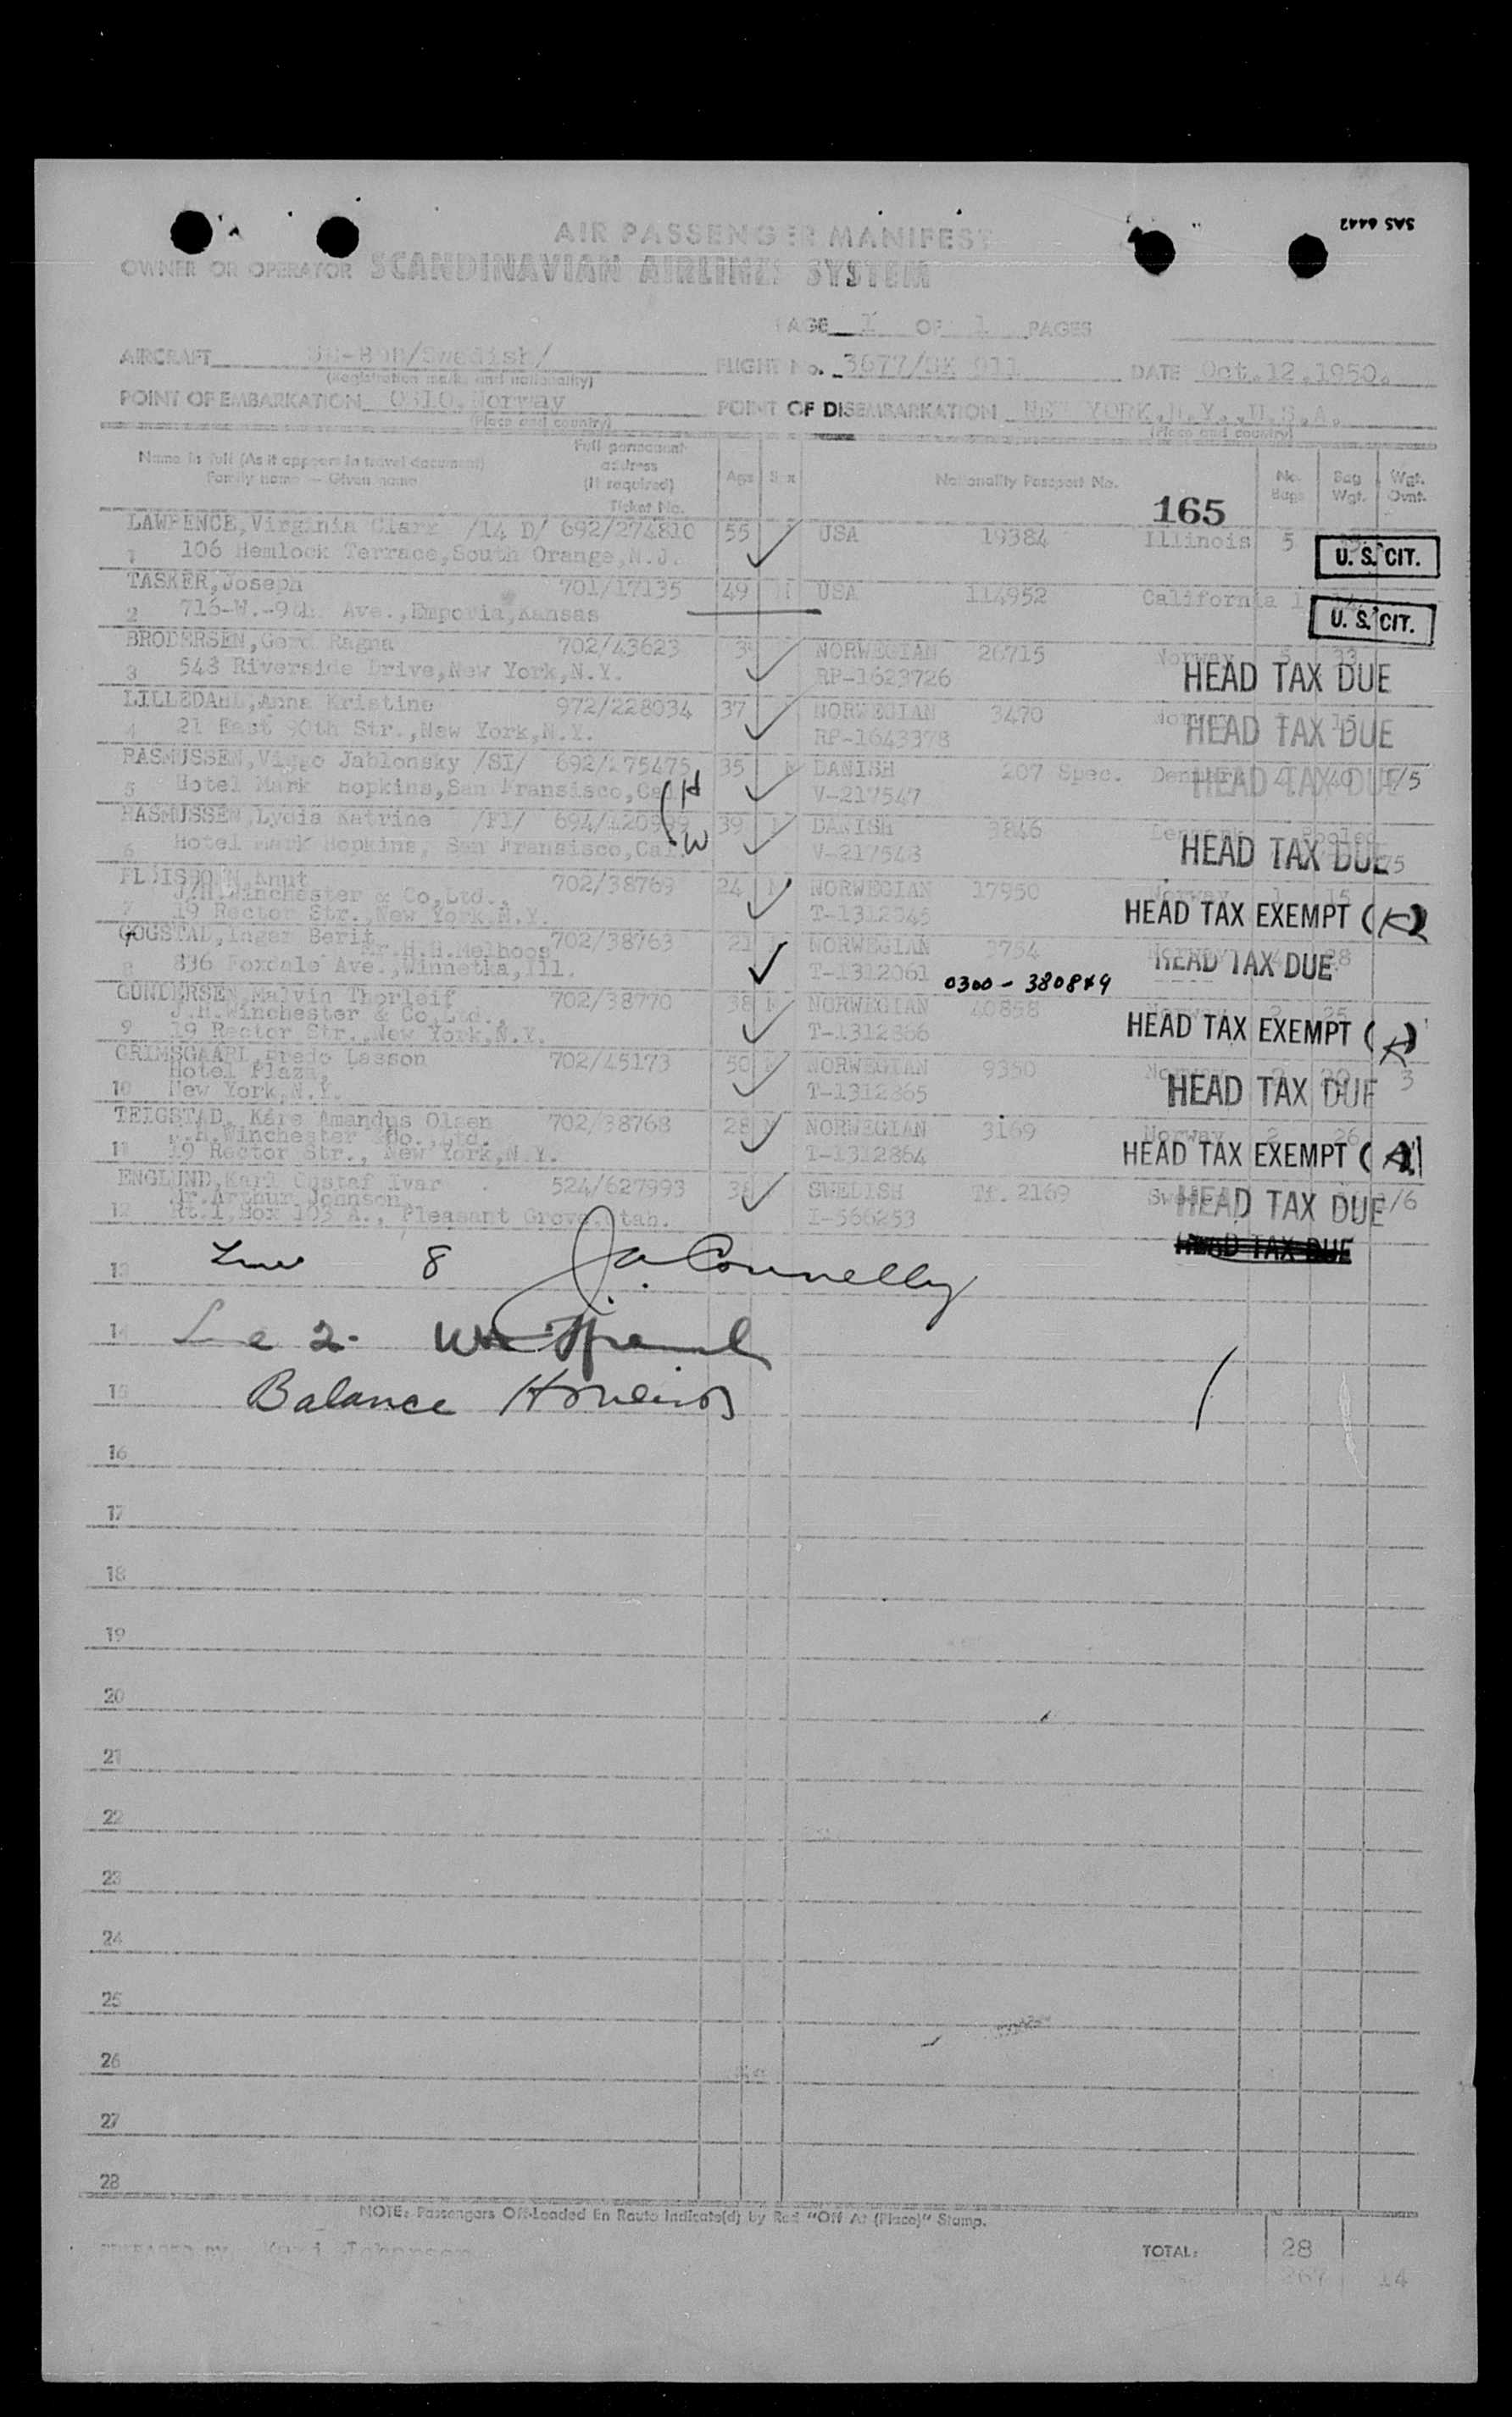 SAS 6442
AIR PASSENGER MANIFEST
OWNER OR OPERATOR SCANDINAVIAN AIRLINES SYSTEM
PAGE 1 OF 1 PAGES
AIRCRAFT /Swedish/ FLIGHT No. 3677/SK 911 DATE Oct.12.1950.
(Registration marks and nationality)
POINT OF EMBARKATION OSLO, Norway POINT OF DISEMBARKATION NEW YORK,N.Y.,U.S.A.
(Place and country) (Place and country)
Name in full (As it appears in travel document) Family name — Given name
Full permanent address (if required) Ticket No.
Age Sex Nationality Passport No. No. Bags Bag Wgt. Wgt. Ovnt.
165
LAWRENCE,Virginia Clark /14 D/ 692/274810 55 USA 19384 Illinois 5
1 106 Hemlock Terrace,South Orange,N.J. U. S. CIT.
TASKER,Joseph 701/17135 49 M USA 114952 California 1
2 716-W.-9th Ave.,Emporia,Kansas U. S. CIT.
BRODERSEN,Gerd Ragna 702/43623 NORWEGIAN 26715 Norway 33
3 543 Riverside Drive,New York,N.Y. RP-1623726 HEAD TAX DUE
LILLEDAHL,Anna Kristine 972/228034 37 NORWEGIAN 3470 Norway 15
4 21 East 90th Str.,New York,N.Y. RP-1643378 HEAD TAX DUE
RASMUSSEN,Viggo Jablonsky /SI/ 692/275475 35 M DANISH 207 Spec. Denmark 4 40 /5
5 Hotel Mark Hopkins,San Fransisco,Cal. H V-217547 HEAD TAX DUE
RASMUSSEN,Lydia Katrine /FI/ 694/420999 39 DANISH 3846 Denmark Pooled
6 Hotel Mark Hopkins, San Fransisco,Cal. W V-217548 HEAD TAX DUE
Knut 702/38769 24 M NORWEGIAN 17950 Norway 1 15
J.H.Winchester & Co,Ltd.,
7 19 Rector Str.,New York,N.Y. HEAD TAX EXEMPT
GOGSTAD,Inger Berit 702/38763 21 NORWEGIAN 3754 Norway
Mr.H.H.Melhoos
8 836 Foxdale Ave.,Winnetka,Ill. T-1312061 0300-380849 HEAD TAX DUE
GUNDERSEN,Malvin Thorleif 702/38770 38 M NORWEGIAN 40858 Norway 2 25
J.H.Winchester & Co,Ltd.,
9 19 Rector Str.,New York,N.Y. T-1312866 HEAD TAX EXEMPT
GRIMSGAARD, Lasson 702/45173 50 M NORWEGIAN 9350 Norway 2 20 3
Hotel Plaza,
10 New York,N.Y. T-1312865 HEAD TAX DUE
TEIGSTAD, Kåre Amandus Olsen 702/38768 28 M NORWEGIAN 3169 Norway 2 26
J.H.Winchester &Co.,Ltd.
11 19 Rector Str., New York,N.Y. T-1312864 HEAD TAX EXEMPT
ENGLUND,Karl Gustaf Ivar 524/627993 38 SWEDISH Tf. 2169 /6
Mr.Arthur Johnson
12 Rt.1,Box 103 A., Pleasant Grove,Utah. I-566253 HEAD TAX DUE
HEAD TAX DUE
13 8 J.A. Connelly
14 2
15 Balance
16
17
18
19
20
21
22
23
24
25
26
27
28
NOTE: Passengers Off-Loaded En Route Indicate(d) by Red "Off At (Place)" Stamp.
PREPARED BY: Kari Johansen TOTAL: 28
267 14